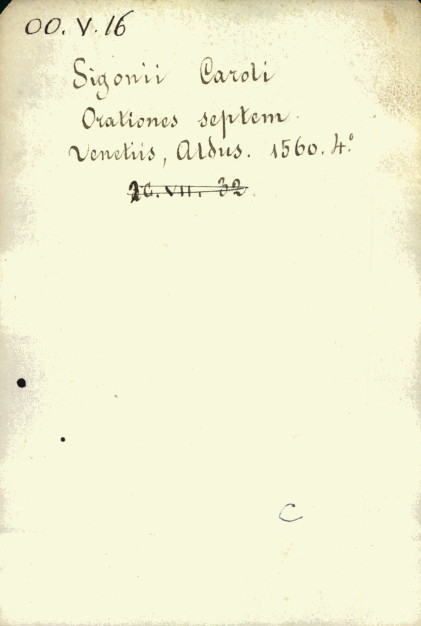 OO. V. 16
Sigonii Caroli
Orationes septem.
Venetiis, Aldus. 1560. 4.º
VII. 32
C